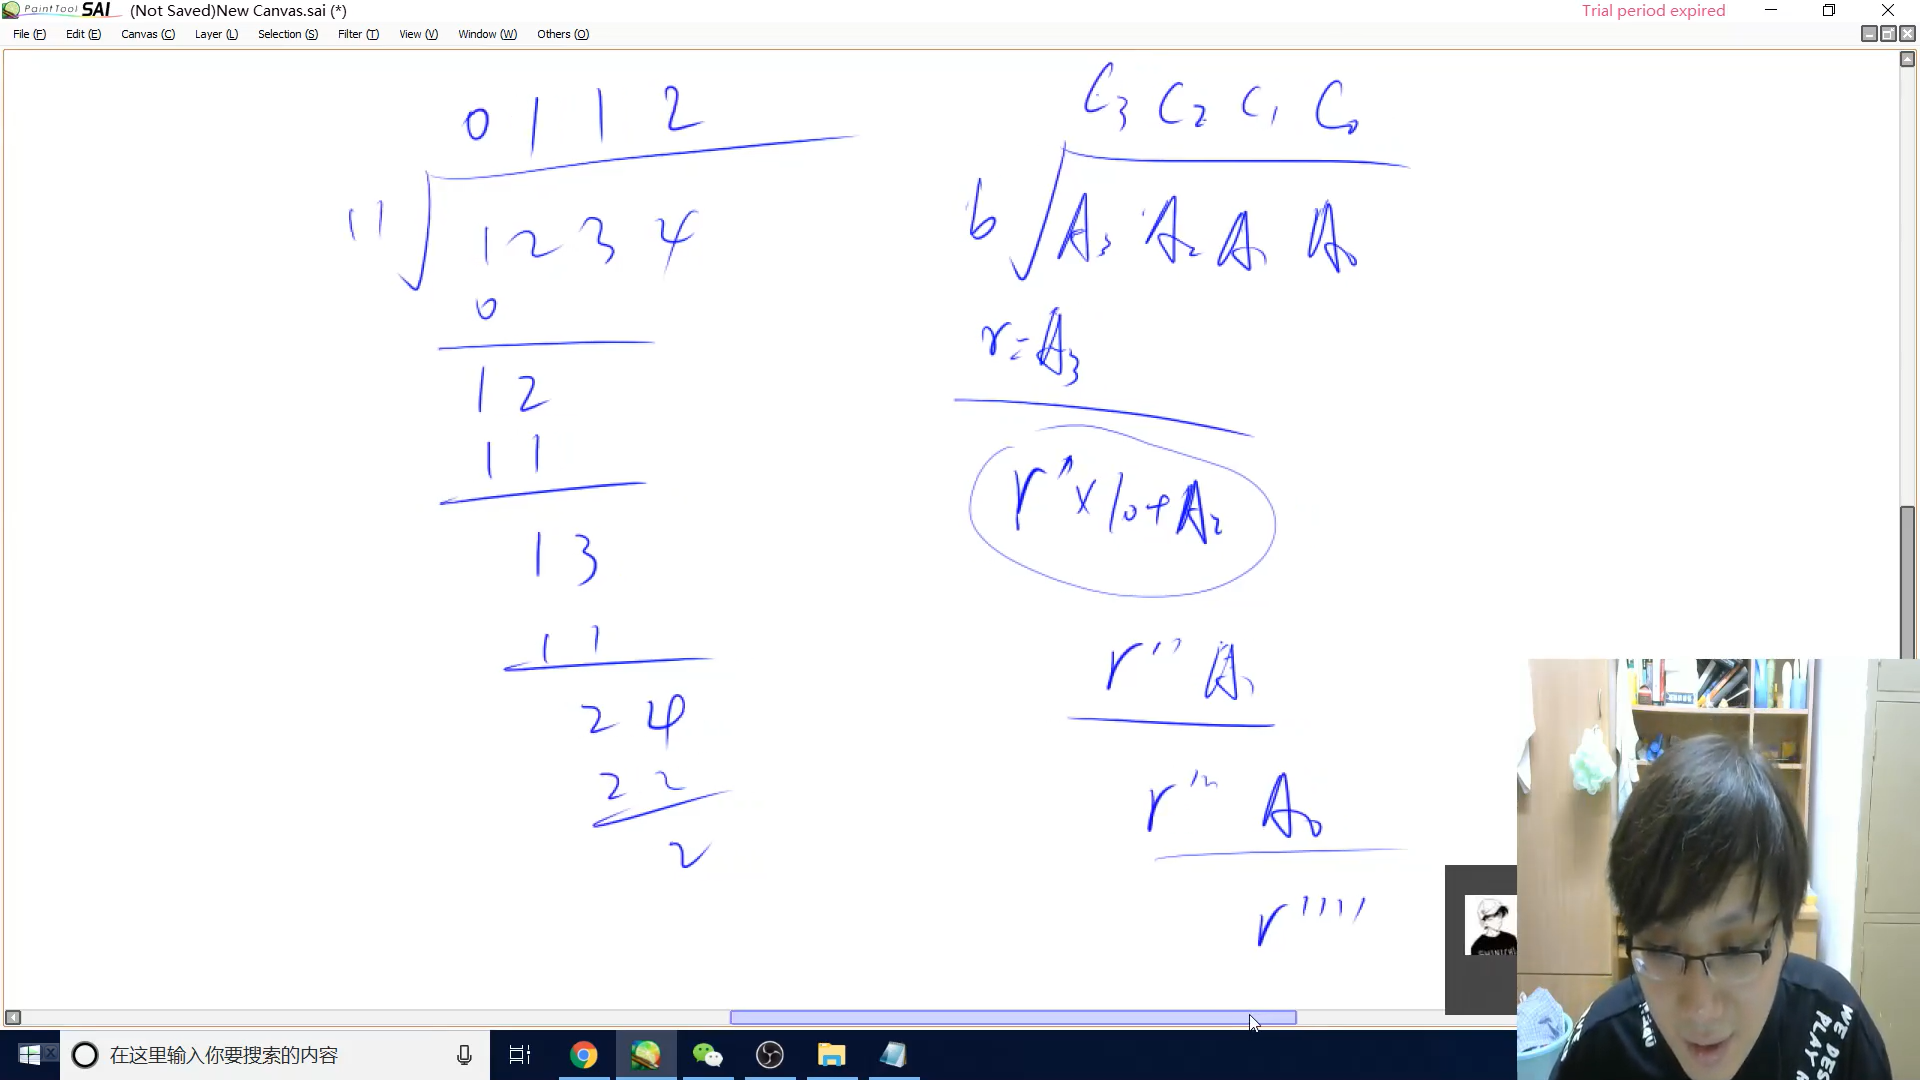 PaintTool SAI (Not Saved)New Canvas.sai (*) Trial period expired
File (F) Edit (E) Canvas (C) Layer (L) Selection (S) Filter (T) View (V) Window (W) Others (O)
0 1 1 2
11 1 2 3 4
0
1 2
1 1
1 3
1 1
2 4
2 2
2
C3 C2 C1 C0
b A3 A2 A1 A0
r=A3
r'×10+A2
r'' A1
r''' A0
r''''
在这里输入你要搜索的内容
WE DES
PLAY